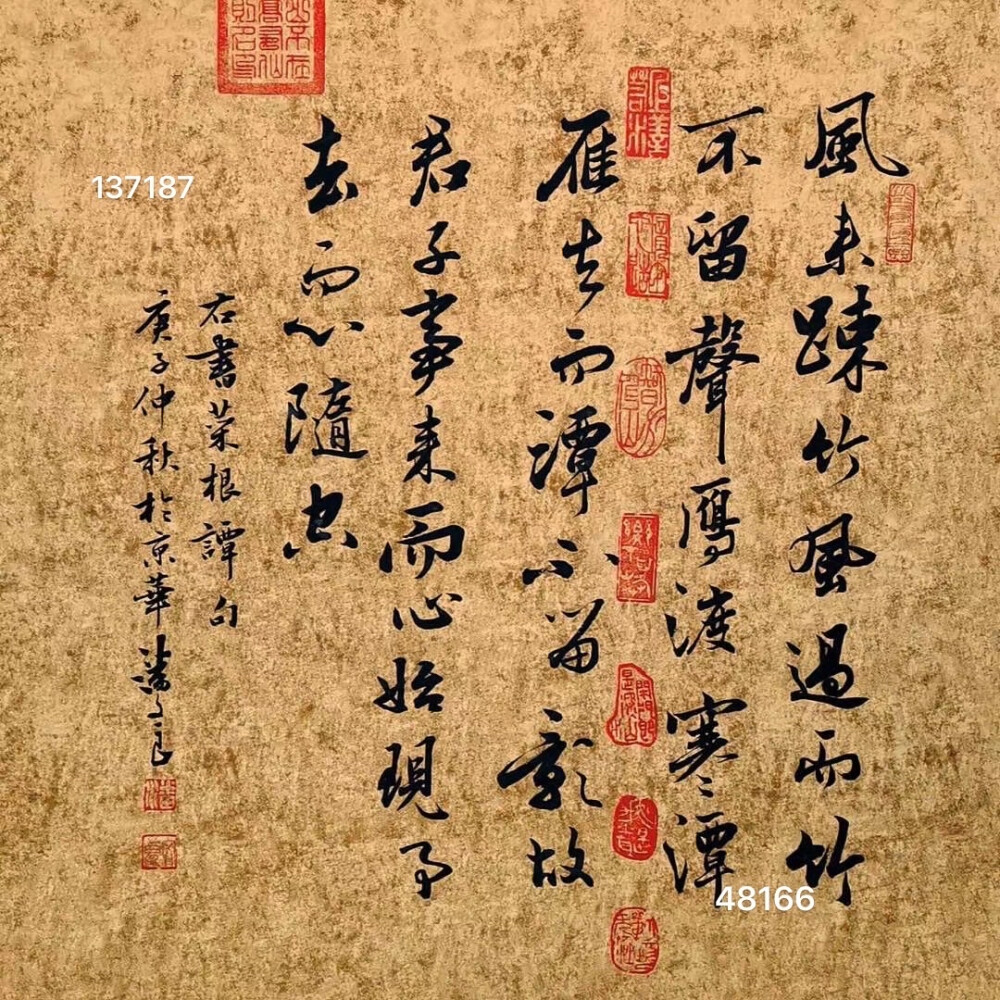 風來踈竹風過而竹
不留聲雁渡寒潭
雁去而潭不留影故
君子事來而心始現事
去而心隨空
右書菜根譚句
庚子仲秋於京華潘文良
137187
48166